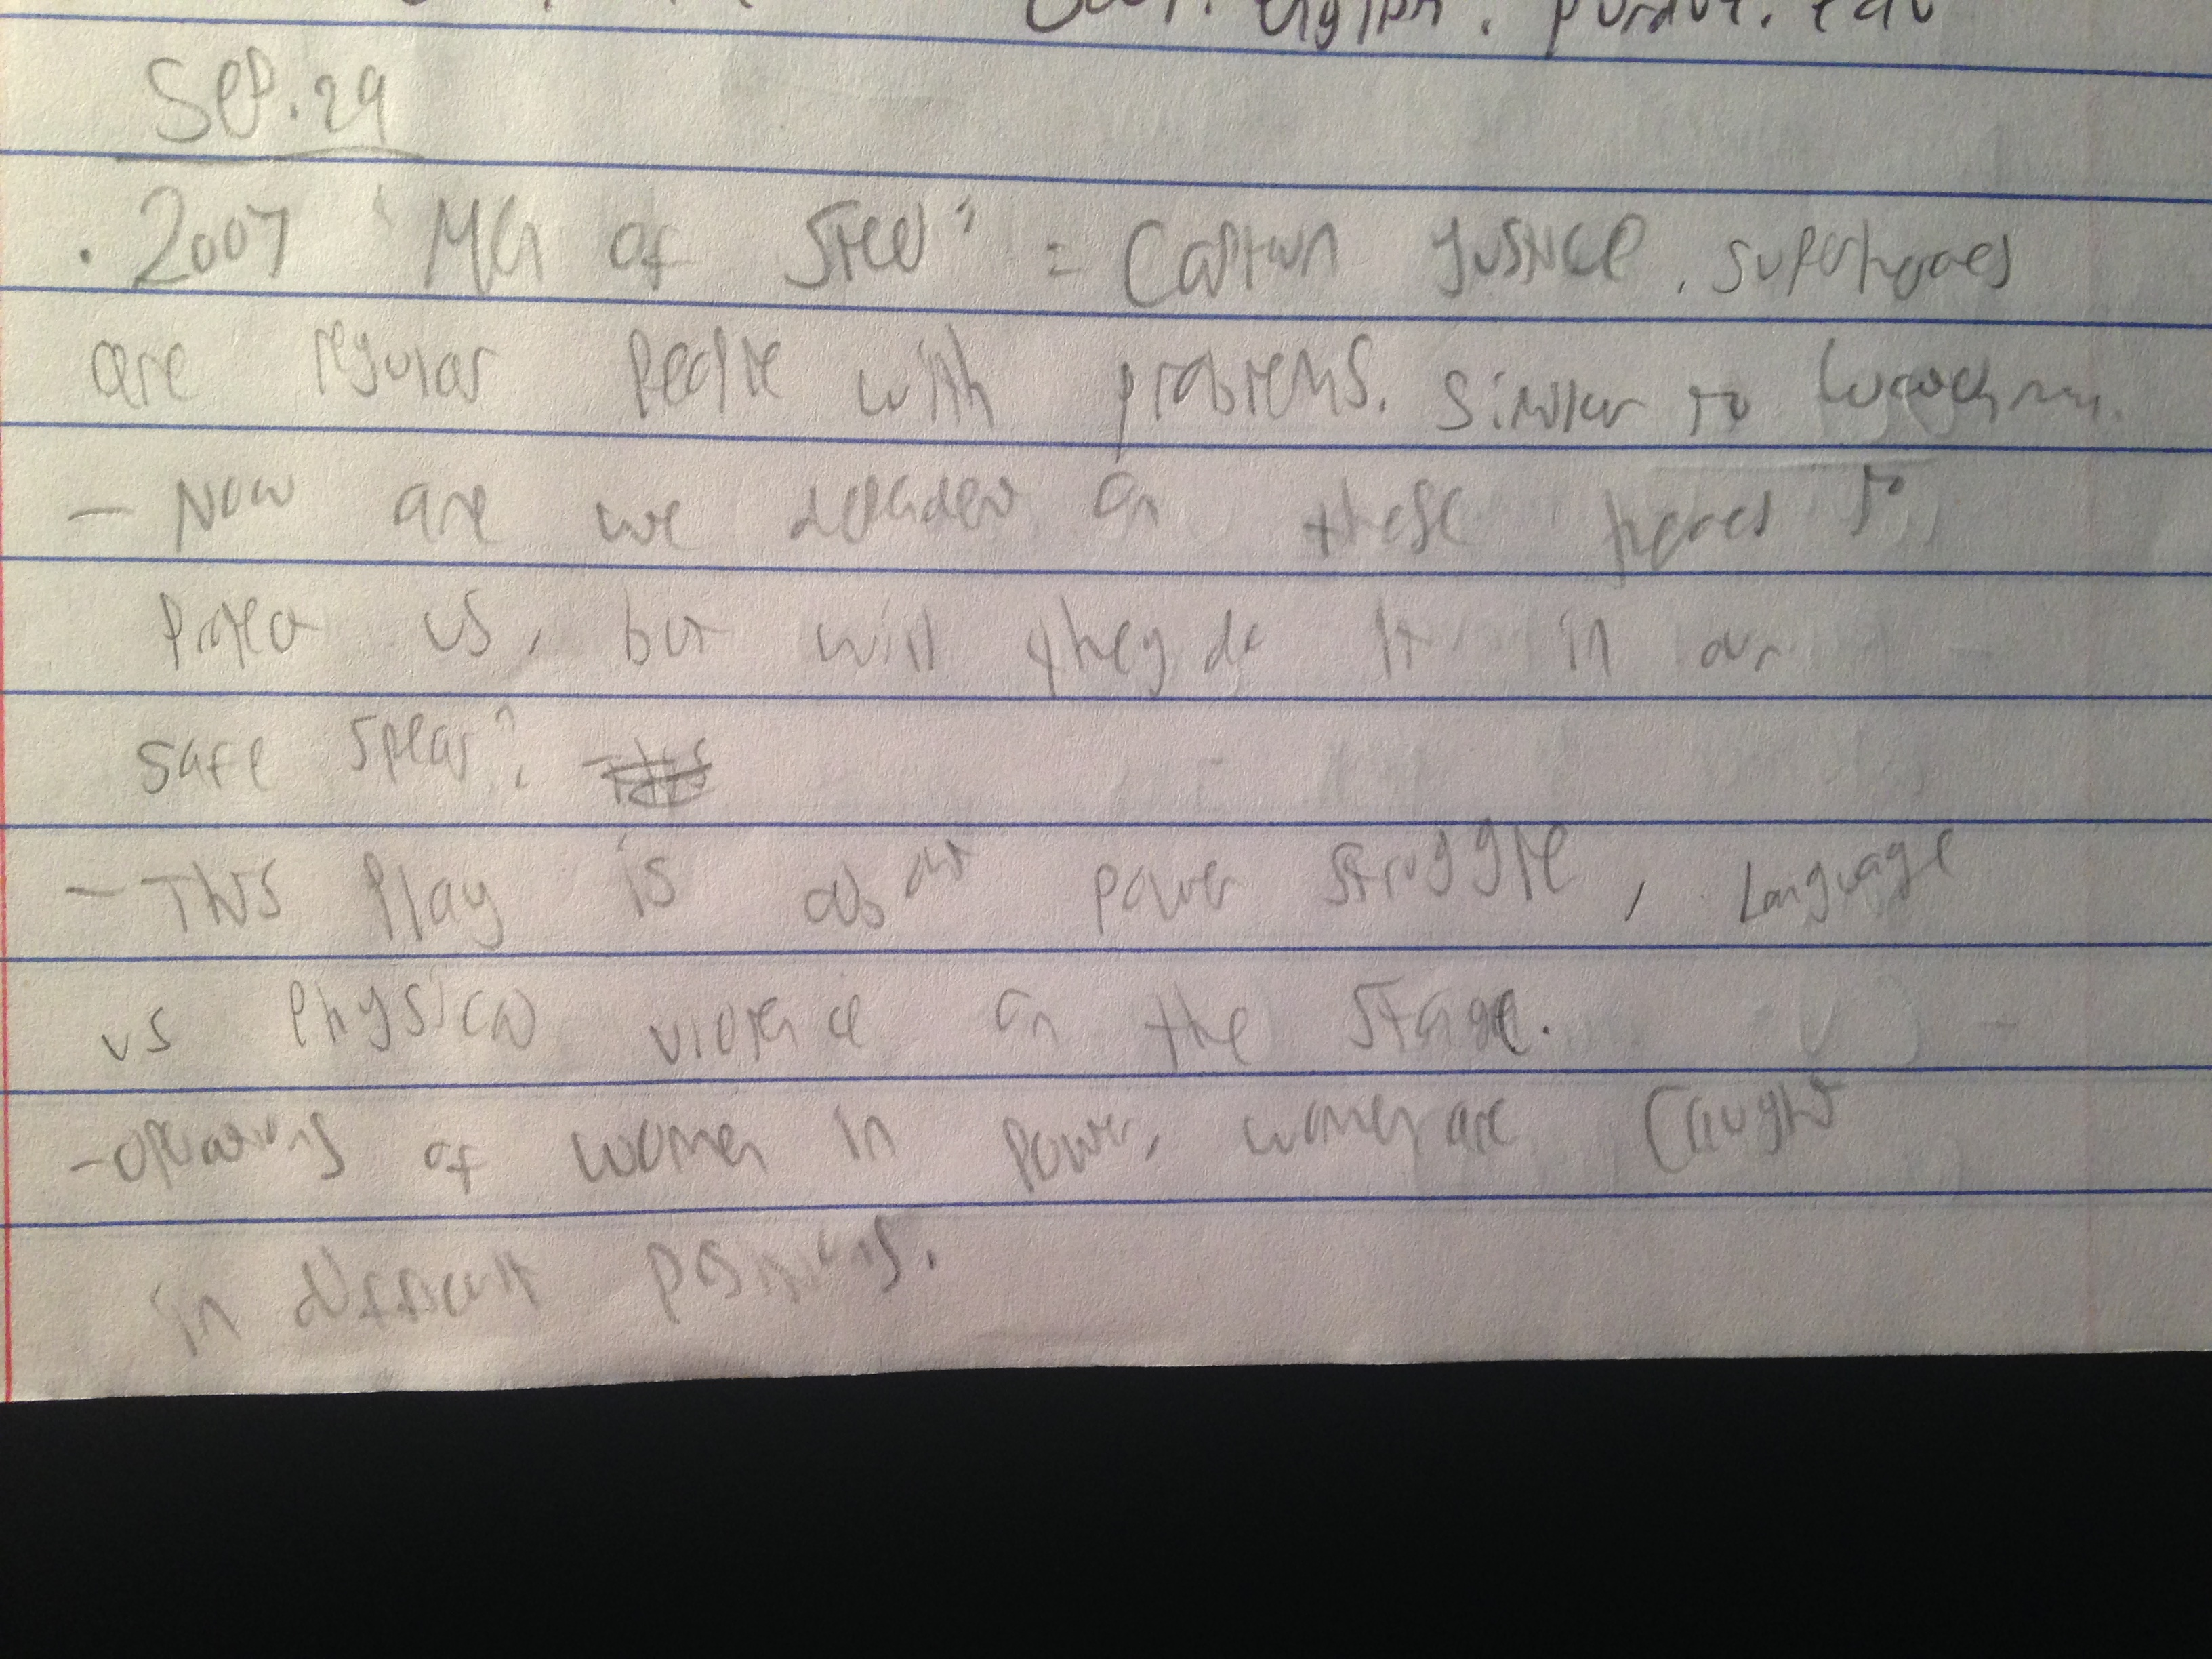 purdue.edu
Sep. 29
· 2007 "Men of Steel" = Captain Justice. superheroes
are regular people with problems. similar to watchmen.
- Now are we dependent on these heroes to
Protect us, but will they do it in our
safe
- This Play is about power struggle, Language
vs Physical violence on the stage.
- of women in power, women are caught
in difficult positions.